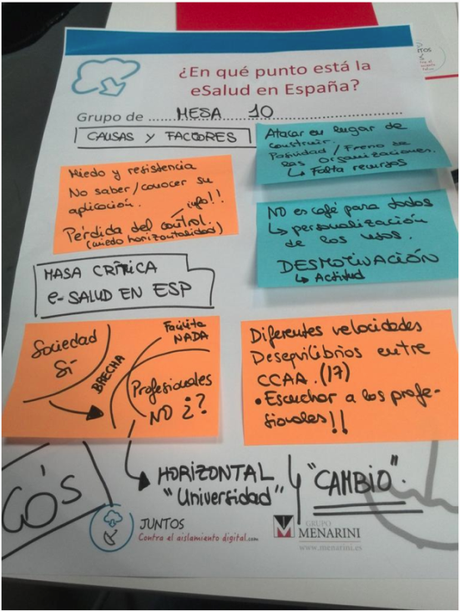 ¿En qué punto está la
eSalud en España?
Grupo de MESA 10
CAUSAS Y FACTORES
Atacar en lugar de
construir.
Pasividad / Freno de
las Organizaciones.
↳ Falta recursos
Miedo y resistencia
No saber/conocer su
aplicación.
Pérdida del control.
(miedo horizontalidad)
NO es café para todos
↳ personalización
de los usos.
DESMOTIVACIÓN
↳ Actitud
MASA CRÍTICA
e-SALUD EN ESP
Sociedad
Sí
BRECHA
Facilita
NADA
Profesionales
NO ¿?
Diferentes velocidades
Desequilibrios entre
CCAA. (17)
• Escuchar a los profe-
sionales!!
HORIZONTAL y "CAMBIO".
"Universidad"
JUNTOS
Contra el aislamiento digital.com
GRUPO
MENARINI
www.menarini.es